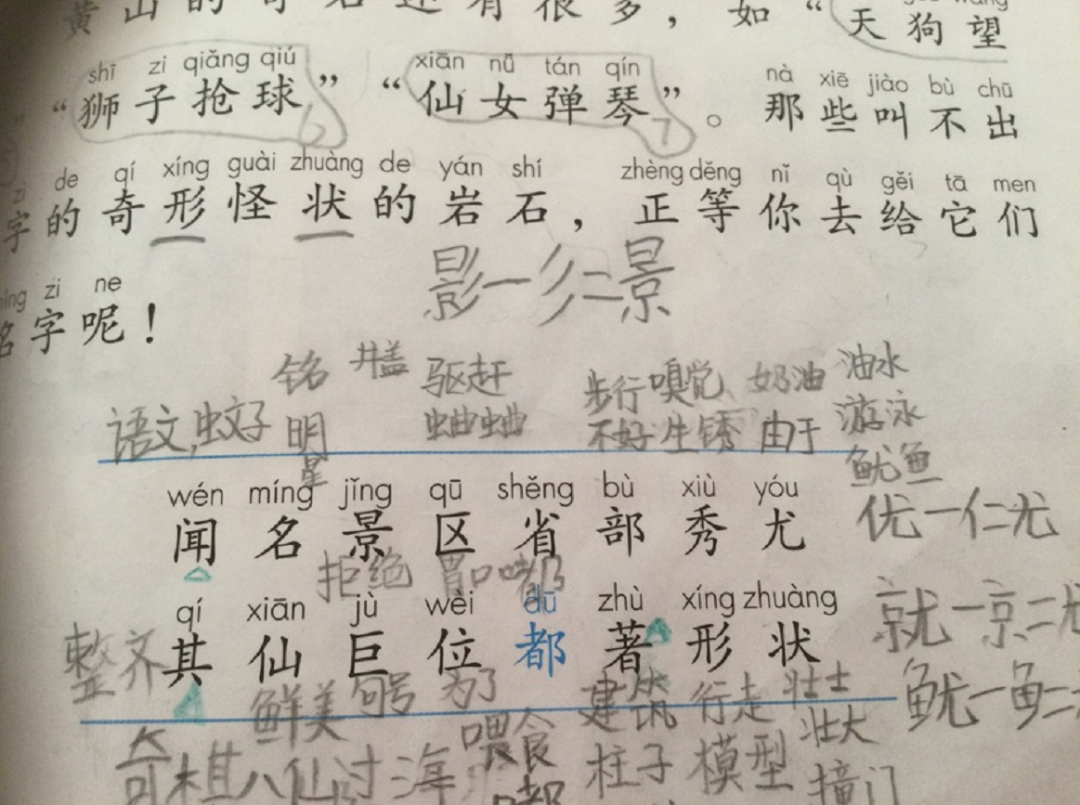 黄山的奇石还有很多，如“天狗望
shī zi qiǎng qiú xiān nǚ tán qín nà xiē jiào bù chū
“狮子抢球”“仙女弹琴”。那些叫不出
zi de qí xíng guài zhuàng de yán shí zhèng děng nǐ qù gěi tā men
字的奇形怪状的岩石，正等你去给它们
zi ne
名字呢！
影一彡二景
铭 井盖 驱赶 步行 嗅觉 奶油 油水
语文,蚊子 明星 蛐蛐 不好 生锈 由于 游泳
鱿鱼
wén míng jǐng qū shěng bù xiù yóu
闻名景区省部秀尤 优一仁尤
拒绝 胃口 嘟
qí xiān jù wèi dū zhù xíng zhuàng
整齐 其仙巨位都著形状 就一京二尤
鲜美 句号 为了 建筑 行走 壮士 鱿一鱼二
奇棋 八仙过海 喂食 柱子 模型 壮大
嘟 撞门